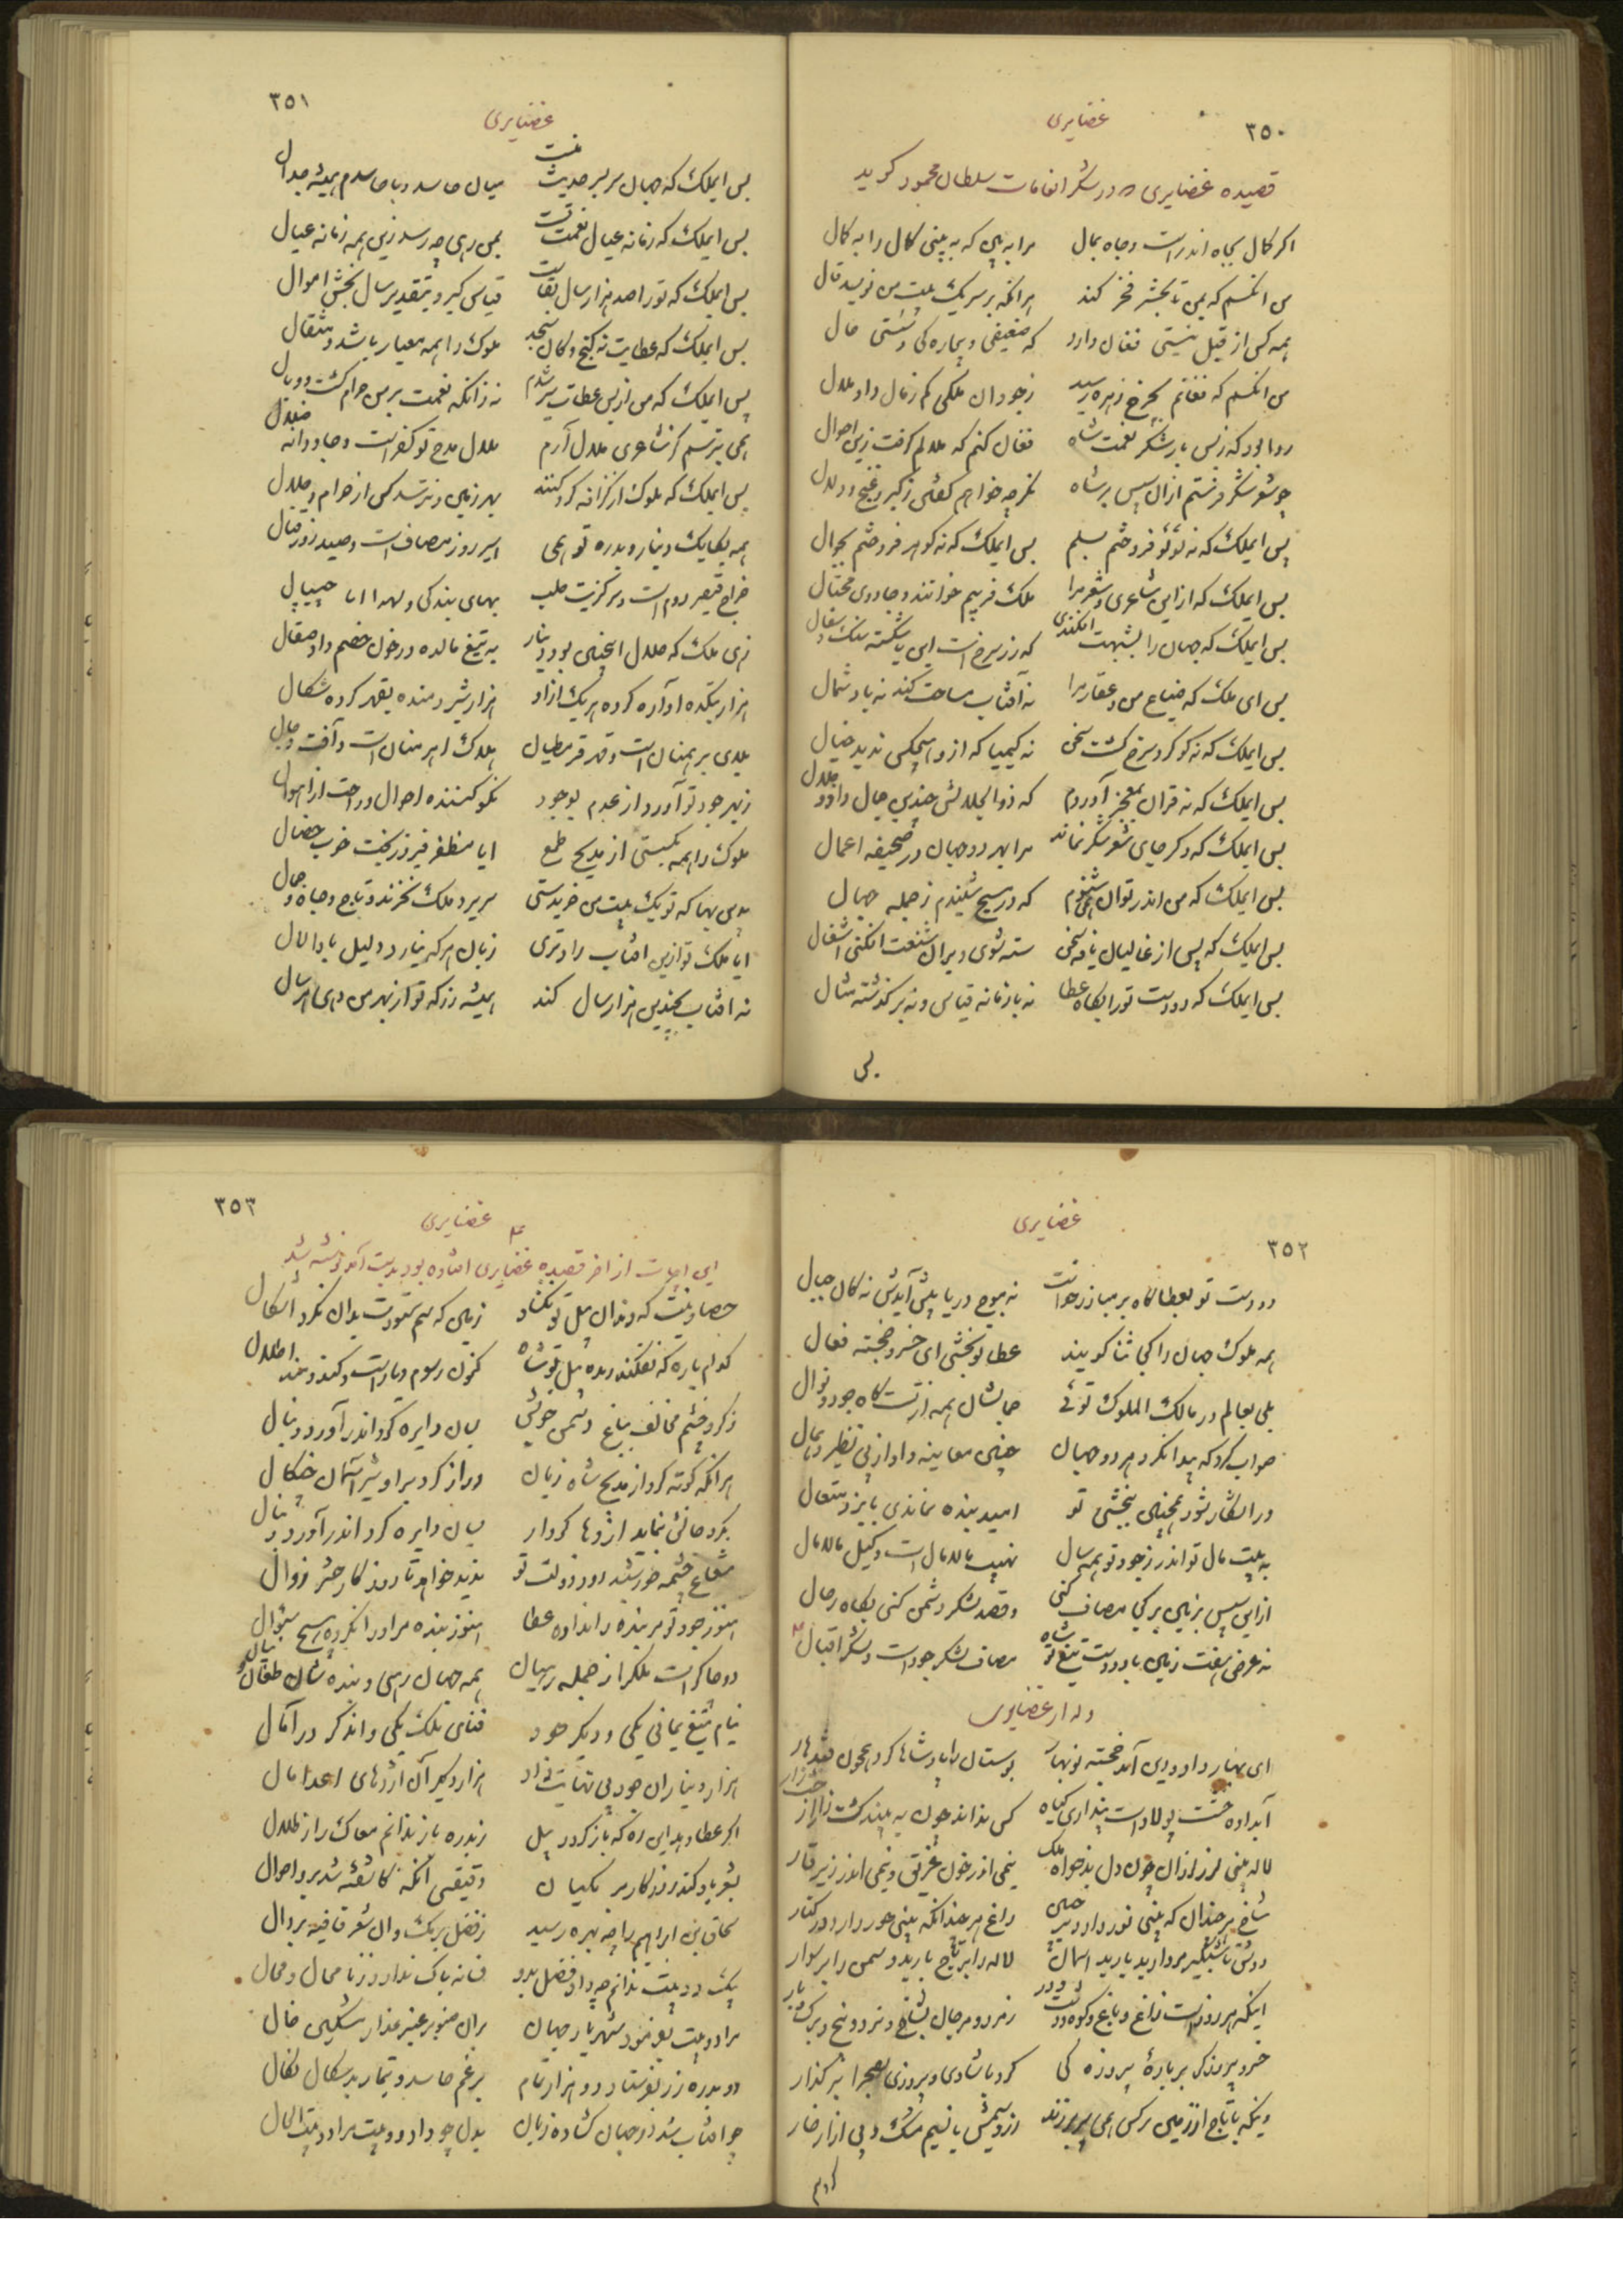 ۳۵۰
غضایری
قصیده غضایری در شکر انعامات سلطان محمود کوید
اکر کمال بجاه اندر است و جاه بمال مرا به بین که به بینی کمال را به کمال
من انکسم که بمن تا بحشر فخر کند هر انکه بر سر یک بیت من نویسد قال
همه کس از قبل نیستی فغان دارد که ضعیفی و بیچاره کی و سستی حال
من انکسم که فغانم بچرخ زهره رسید ز جود ان ملکی کم ز مال داد ملال
روا بود که ز بس بار شکر نعمت شاه فغان کنم که ملالم کرفت زین اموال
چو شعر شکر فرستم ازان سپس بر شاه نکر چه خواهم کفتن ز کبر و غنج و دلال
بس ایملک که نه لؤلؤ فروختم بسلم بس ایملک که نه کوهر فروختم بجوال
بس ایملک که ازین شاعری و شعر مرا ملک فریب خوانند و جادوی محتال
بس ایملک که جهان را بشبهت افکندی که زر سرخ است این یا شکسته سنک و سفال
بس ای ملک که ضیاع من و عقار مرا نه آفتاب مساحت کند نه باد شمال
بس ایملک که نه کوکرد سرخ کشت سخن نه کیمیا که ازو هیچکس ندید خیال
بس ایملک که نه قران بمعجز آوردم که ذوالجلالش چندین جمال داد و جلال
بس ایملک که دکر جای شعر شکر نماند مرا بهر دو جهان در صحیفه اعمال
بس ایملک که من اندر تو ان همی شنوم که در مسیح شنیدم ز جمله جهال
بس ایملک که پس از غالیان یافه سخن ستوه شوی و بر ان شنعت افکنی اشغال
بس ایملک که دو دست تو را بکاه عطا نه با زمانه قیاس و نه بر کذشته مثال
بس
۳۵۱
غضایری
بس ایملک که جهان سر بسر حدیث منست میان حاسد و با حاسدم همیشه جدال
بس ایملک که زمانه عیال نعمت تست بمن رهی چه رسد زین همه زمانه عیال
بس ایملک که تو را صد هزار سال بقاست قیاس کیر و بتقدیر سال بخش اموال
بس ایملک که عطایت نه کنج و کان سنجد ملوک را همه معیار باشد و مثقال
بس ایملک که من از بس عطات سیر شدم نه زانکه نعمت بر من حرام کشت و وبال
همی بترسم کز شاعری ملال آرم ملال مدح تو کفر است و جاودانه ضلال
بس ایملک که ملوک از کزافه کرد کنند بهر زمین و نترسد کس از حرام و حلال
همه یکایک دینار و بدره تو همی اسیر روز مصاف است و صید روز قتال
خراج قیصر روم است و سر کزیت حلب بهای بندکی و لهدا انا جیپال
زهی ملک که حلال اینچنین بود دینار به تیغ مالده در خون خصم داد صقال
هزار بتکده آواره کرده هر یک ازاد هزار شیر دمنده بقهر کرده شکال
بلای برهمنان است و قهر قرمطیان هلاک اهرمنان است و آفت دجال
ز بهر جود تو آورد از عدم بوجود نکو کننده احوال و راحت از اهوال
ملوک را همه بکسستی از مدیح طمع ایا مظفر فیروزبخت خوب خصال
بدین بها که تو یک بیت من خریدستی سریر و ملک نخرند و تاج و جاه و جمال
ایا ملک تو ازین افتاب راد تری زبان هر که نیارد دلیل باد الال
نه افتاب بچندین هزار سال کند همیشه زر که تو از بهر من دهی هر سال
۳۵۲
غضایری
دو دست تو بعطا کاه بر مبارز خواست نه موج دریا پیش آیدش نه کان جبال
همه ملوک جهان را کجا ثنا کویند عطا تو بخشی ای خسرو خجسته فعال
بلی بعالم در مالک الملوک توئی حسابشان همه از تست کاه جود و نوال
صواب کرد که پیدا نکرد هر دو جهان چنین معاینه دادار بی نظیر و همال
ور اشکار شود همچنین ببخشی تو امید بنده نماندی بایزد متعال
به بیت مال تو اندر ز جود تو همه سال نهیب مالامال است و کیل مالامال
ازین سپس بزمین بر کجا مصاف کنی و قصد لشکر دشمن کنی بکاه رحال
نه عرض هفت زمین باد دو دست تیغ تو شاه مصاف لشکر جود است و لشکر اقبال
وله از غضایری
ای بهار داودی آمد خجسته نوبهار بوستان را پادشاها کرد همچون قندهار
آب داده خشت پولاد است پنداری کیاه کس نداند چون به بیند کشت زار از خشت زار
لاله بینی لرز لرزان چون دل بدخواه ملک نیمی اندر خون غریق و نیمی اندر زیر قار
شاخ هر چندان که بینی نور دارد بر جبین راغ هر چندانکه بینی حور دارد در کنار
دوش تا شبکیر مروارید بارید اسمان لاله را بر تاج بارید و سمن را بر سوار
اینکه هر روز است راغ و باغ و کوه و دشت و در زمرد و مرجان بشاخ و نبرد و بیخ و برک و بار
خسرو پیروزکر بر باره پیروزه کی کرد با شادی و پیروزی بصحرا بر کذار
دیکه با تاج از زمین نرکس همی سر بر زند از و سیمش با نسیم مشک و بی ازار خار
کرد هم
۳۵۳
غضایری
این ابیات از اخر قصیده غضایری افتاده بود بدست آمد نوشته شد
حصار نیست که دندان پیل تو نکشاد زمین که سم ستورت بدان نکرد اشکال
کدام باره که نفکند زنده پیل تو شاه کنون رسوم دیار است و کند و مند اطلال
ز کرد خشم مخالف بباغ دشمن خویش بسان دایره کرد اندر آورد دنبال
هر انکه کوته کرد از مدیح شاه زبان دراز کرد بر او شیر آسمان چنکال
بکرد خانش نماید اژدها کردار بسان دایره کرد اندر آورد دنبال
شعاع چشمه خورشید روز دولت تو ندید خواهد تا روزکار حشر زوال
هنوز جود تو مر بنده را نداده عطا هنوز بنده مر او را نکرده هیچ سؤال
دو چاکر است ملکرا ز جمله رهیان همه جهان رهی و بنده شان طفال و عیال
نیام تیغ یمانی یکی و دیکر جود فنای ملک یکی و اندکر در آمال
هزار دینار ان جود بی نهایت داد هزار دیکر آن اژدهای اعدا مال
اکر عطا دهد این ره که باز کردد پیل ز بدره باز ندانم معاک را ز ظلال
بشعر یاد کند روزکار برمکیان دقیقی انکه کاشفته شد برو احوال
بحاق بن ابراهیم را چه بهره رسید ز فضل برمک وان شعر قافیه بر دال
بیک دو بیت ندانم چه داد فضل بدو فسانه باک ندارد ز نا محال و محال
مرا دو بیت بفرمود شهریار جهان بران صنوبر عنبر عذار مشکین خال
دو بدره زر بفرستاد و دو هزار تمام برغم حاسد و تیمار بدسکال نکال
چو افتاب شدم در جهان کشاده زبان بدل چو داد دو بیت مراد و بیت المال